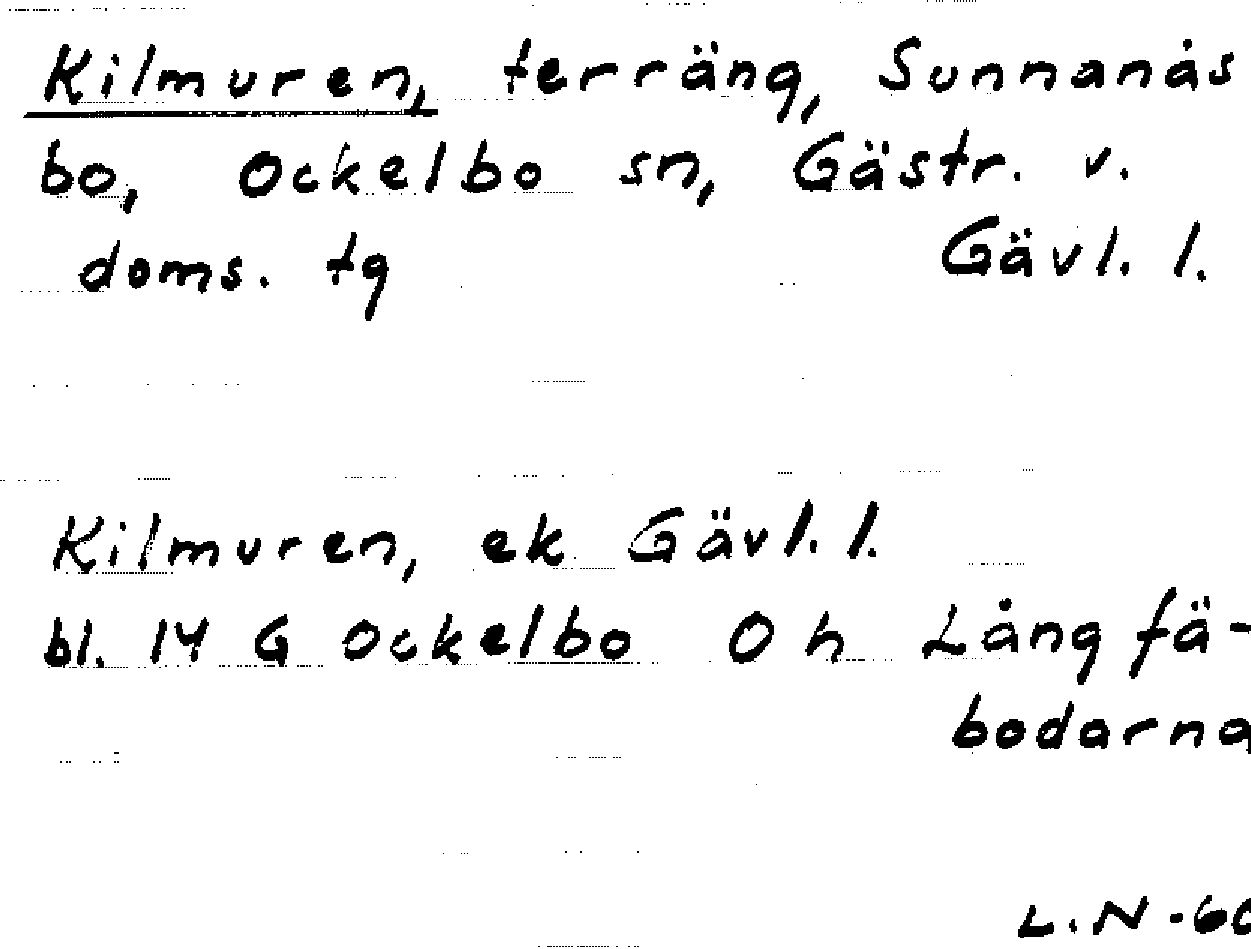 Kilmuren, terräng, Sunnanås
bo, Ockelbo sn, Gästr. v.
doms. tg Gävl. l.
Kilmuren, ek Gävl. l.
bl. 14 G Ockelbo 0 h Långfä-
bodarna
L.N-60